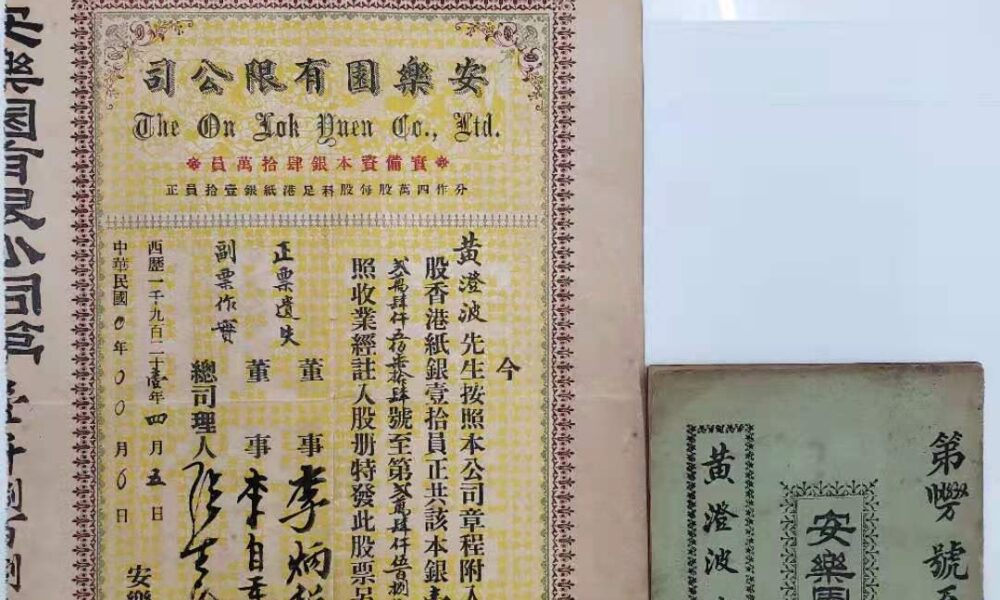 安樂園有限公司
The On Lok Yuen Co., Ltd.
實備資本銀肆拾萬員
分作四萬股每股科足港紙銀壹拾員正
今
黃澄波先生按照本公司章程附入
股香港紙銀壹拾員正共該本銀
貳萬肆仟號至第貳萬肆仟伍百捌
照收業經註入股册特發此股票另
正票遺失
副票作實
董事李炳
董事李自重
總司理人
西歷一千九百二十壹年四月五日
中華民國0年00月0日
安樂
安樂園有限公司
第號
安樂園
黃澄波